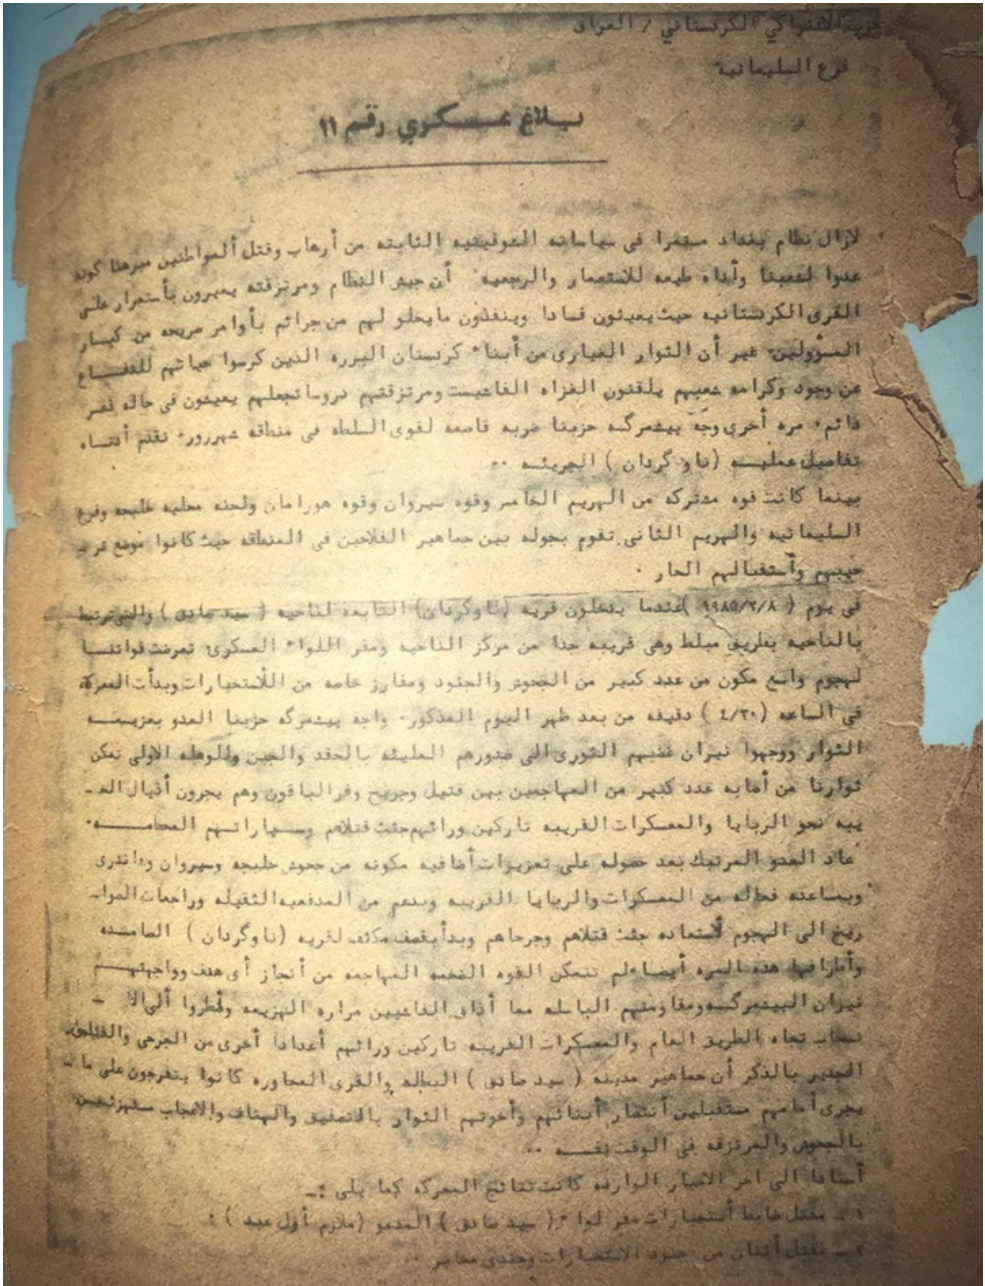 حزب الاشتراكي الكردستاني / العراق
فرع السليمانية
بلاغ عسكري رقم ١١
لازال نظام بغداد مستمرا فى سياساته الشوفينيه الثابته من أرهاب وقتل المواطنين مبرهنا كونه
عدوا لشعبنا وأداه طيعه للاستعمار والرجعيه أن جيش النظام ومرتزقته يعبرون بأستمرار على
القرى الكردستانيه حيث يعيثون فسادا وينفذون مايحلو لهم من جرائم بأوامر صريحه من كبار
المسؤولين٠ غير أن الثوار الغيارى من أبناء كردستان البرره الذين كرسوا حياتهم للدفاع
عن وجود وكرامه شعبهم يلقنون الغزاه الفاشيست ومرتزقتهم دروسا تجعلهم يعيشون فى حاله
دائم٠ مره أخرى وجه بيشمرگه حزبنا ضربه قاصمه لقوى السلطه فى منطقه شهرزور٠ نقدم أدناه
تفاصيل عمليه (ناوگردان) الجريئه ٠٠
بينما كانت قوه مشتركه من الهريم الخامس وقوه سيروان وقوه هورامان ولجنه محليه حلبجه وفرع
السليمانيه والهريم الثانى تقوم بجوله بين جماهير الفلاحين فى المنطقه حيث كانوا موضع
حبهم وأستقبالهم الحار ٠
فى يوم ( ١٩٨٥/٢/٨ )عندما يدخلون قريه (ناوگردان) التابعه لناحيه (سيد صادق) والتى ترتبط
بالناحيه بطريق مبلط وهى قريبه جدا من مركز الناحيه ومقر اللواء العسكرى٠ تعرضت قواتنا
لهجوم واسع مكون من عدد كبير من الجحوش والجنود ومفارز خاصه من الأستخبارات وبدأت المعركة
فى الساعه (٤/٢٠) دقيقه من بعد ظهر اليوم المذكور٠ واجه بيشمرگه حزبنا العدو بعزيمه
الثوار ووجهوا نيران غضبهم الثورى الى صدورهم المليئه بالحقد والجبن وللوهله الاولى تمكن
ثوارنا من أصابه عدد كبير من المهاجمين بين قتيل وجريح وفر الباقون وهم يجرون أذيال الخـ
يبه نحو الربايا والمعسكرات القريبه تاركين ورائهم جثث قتلاهم وسياراتهم المحاصره٠
عاد العدو المرتبك بعد حصوله على تعزيزات أضافيه مكونه من جحوش حلبجه وسيروان
وبمساعده فعاله من المعسكرات والربايا القريبه وبدعم من المدفعيه الثقيله وراجمات الصوا ـ
ريخ الى الهجوم لأستعاده جثث قتلاهم وجرحاهم وبدأ بقصف مكثف لقريه (ناوگردان) الصامده
وأطرافها هذه المره أيضا لم تتمكن القوه الضخمه المهاجمه من أنجاز أى هدف وواجهتهم
نيران البيشمرگه ومقاومتهم الباسله مما أذاق الفاشيين مراره الهزيمه وأضطروا ألى الا ـ
نسحاب تجاه الطريق العام والمعسكرات القريبه تاركين ورائهم أعدادا أخرى من الجرحى والقتلى٠
الجدير بالذكر أن جماهير مدينه ( سيد صادق ) البطله والقرى المجاوره كانوا يتفرجون على ما ـ
يجرى أمامهم مستقبلين أنتصار أبنائهم وأخوتهم الثوار بالتصفيق والهتاف والاعجاب مستهزئين
بالجحوش والمرتزقه فى الوقت نفسه ٠٠
أستنادا الى اخر الاخبار الوارده كانت نتائج المعركه كما يلى :ـ
١ ـ مقتل ضابط أستخبارات مقر لواء ( سيد صادق ) المدعو (ملازم أول عبد ) ٠
٢ ـ مقتل أثنان من جنود الاستخبارات وجندى مخابر ٠٠